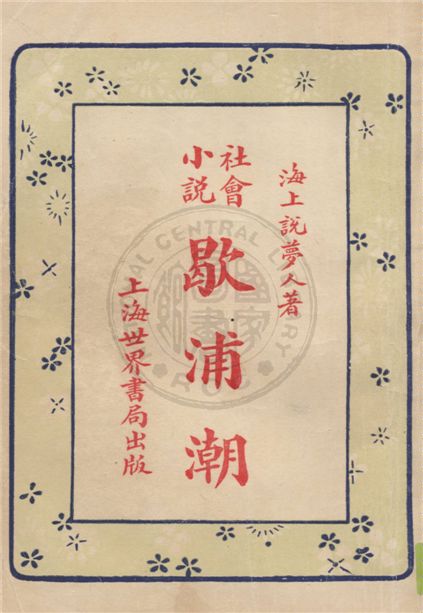 海上說夢人著
社會
小説
歇浦潮
上海世界書局出版
CENTRAL LIBRARY